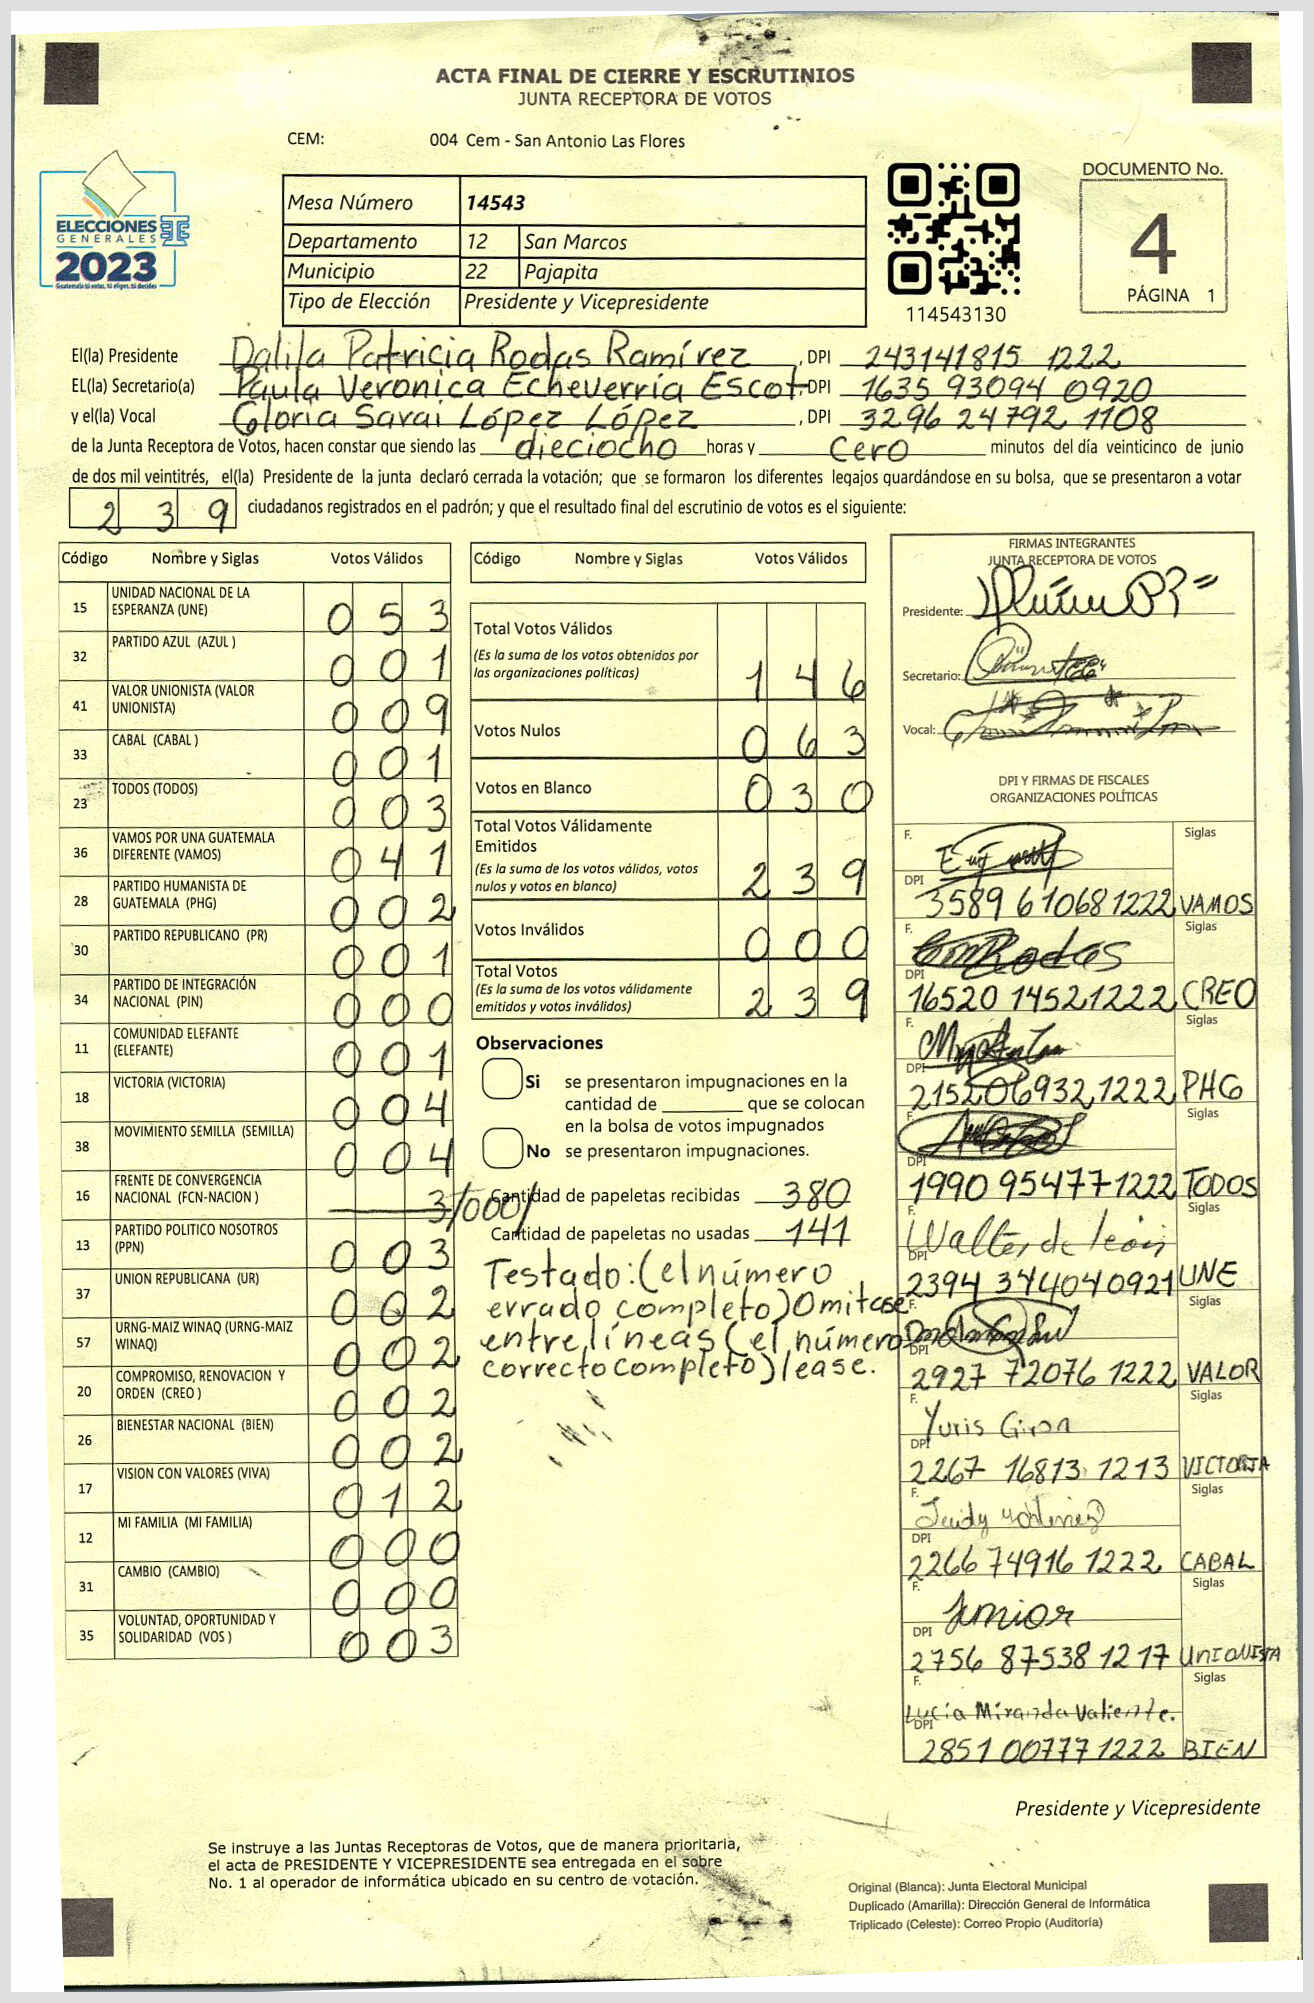 ACTA FINAL DE CIERRE Y ESCRUTINIOS
JUNTA RECEPTORA DE VOTOS
CEM: 004 Cem - San Antonio Las Flores
ELECCIONES
GENERALES
2023
Guatemala tú votas, tú eliges, tú decides
Mesa Número 14543
Departamento 12 San Marcos
Municipio 22 Pajapita
Tipo de Elección Presidente y Vicepresidente
114543130
DOCUMENTO No.
4
PÁGINA 1
El(la) Presidente Dalila Patricia Rodas Ramírez, DPI 243141815 1222
EL(la) Secretario(a) Paula Veronica Echeverría Escot, DPI 1635 93094 0920
y el(la) Vocal Gloria Sarai López López, DPI 3296 24792 1108
de la Junta Receptora de Votos, hacen constar que siendo las dieciocho horas y cero minutos del día veinticinco de junio
de dos mil veintitrés, el(la) Presidente de la junta declaró cerrada la votación; que se formaron los diferentes legajos guardándose en su bolsa, que se presentaron a votar
239 ciudadanos registrados en el padrón; y que el resultado final del escrutinio de votos es el siguiente:
Código Nombre y Siglas Votos Válidos
15 UNIDAD NACIONAL DE LA
ESPERANZA (UNE) 053
32 PARTIDO AZUL (AZUL ) 001
41 VALOR UNIONISTA (VALOR
UNIONISTA) 009
33 CABAL (CABAL ) 001
23 TODOS (TODOS) 003
36 VAMOS POR UNA GUATEMALA
DIFERENTE (VAMOS) 041
28 PARTIDO HUMANISTA DE
GUATEMALA (PHG) 002
30 PARTIDO REPUBLICANO (PR) 001
34 PARTIDO DE INTEGRACIÓN
NACIONAL (PIN) 000
11 COMUNIDAD ELEFANTE
(ELEFANTE) 001
18 VICTORIA (VICTORIA) 004
38 MOVIMIENTO SEMILLA (SEMILLA) 004
16 FRENTE DE CONVERGENCIA
NACIONAL (FCN-NACION ) 3/000/
13 PARTIDO POLITICO NOSOTROS
(PPN) 003
37 UNION REPUBLICANA (UR) 002
57 URNG-MAIZ WINAQ (URNG-MAIZ
WINAQ) 002
20 COMPROMISO, RENOVACION Y
ORDEN (CREO ) 002
26 BIENESTAR NACIONAL (BIEN) 002
17 VISION CON VALORES (VIVA) 012
12 MI FAMILIA (MI FAMILIA) 000
31 CAMBIO (CAMBIO) 000
35 VOLUNTAD, OPORTUNIDAD Y
SOLIDARIDAD (VOS ) 003
Código Nombre y Siglas Votos Válidos
Total Votos Válidos
(Es la suma de los votos obtenidos por
las organizaciones políticas) 146
Votos Nulos 063
Votos en Blanco 030
Total Votos Válidamente
Emitidos
(Es la suma de los votos válidos, votos
nulos y votos en blanco) 239
Votos Inválidos 000
Total Votos
(Es la suma de los votos válidamente
emitidos y votos inválidos) 239
Observaciones
Si se presentaron impugnaciones en la
cantidad de ________ que se colocan
en la bolsa de votos impugnados
No se presentaron impugnaciones.
Cantidad de papeletas recibidas 380
Cantidad de papeletas no usadas 141
Testado: (el número
errado completo) Omitase
entre líneas (el número
correcto completo) lease.
FIRMAS INTEGRANTES
JUNTA RECEPTORA DE VOTOS
Presidente:
Secretario:
Vocal:
DPI Y FIRMAS DE FISCALES
ORGANIZACIONES POLÍTICAS
F. Siglas
DPI 3589 61068 1222 VAMOS
F. Rodas Siglas
DPI 16520 1452 1222 CREO
F. Siglas
DPI 215206932 1222 PHG
F. Siglas
DPI 1990 95477 1222 TODOS
F. Walter de león Siglas
DPI 2394 34404 0921 UNE
F. Siglas
DPI 2927 72076 1222 VALOR
F. Yuris Giron Siglas
DPI 2267 16813 1213 VICTORIA
F. Siglas
DPI 2266 74916 1222 CABAL
F. Junior Siglas
DPI 2756 87538 1217 UNIONISTA
F. Lucía Miranda Valiente. Siglas
DPI 2851 00777 1222 BIEN
Presidente y Vicepresidente
Se instruye a las Juntas Receptoras de Votos, que de manera prioritaria,
el acta de PRESIDENTE Y VICEPRESIDENTE sea entregada en el sobre
No. 1 al operador de informática ubicado en su centro de votación.
Original (Blanca): Junta Electoral Municipal
Duplicado (Amarilla): Dirección General de Informática
Triplicado (Celeste): Correo Propio (Auditoría)